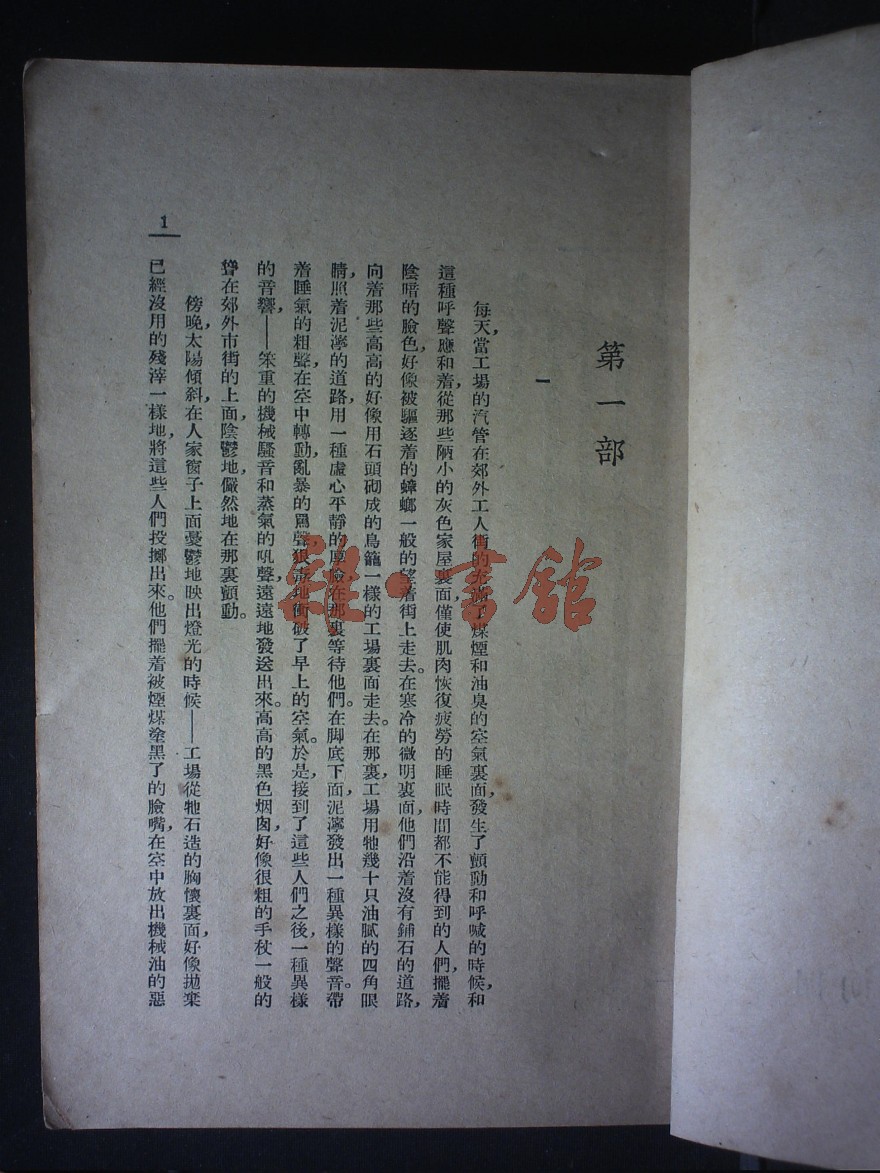 第一部
一
每天，當工場的汽管在郊外工人街的充滿了煤煙和油臭的空氣裏面，發生了顫動和呼喊的時候，和
這種呼聲應和着，從那些陋小的灰色家屋裏面，僅使肌肉恢復疲勞的睡眠時間都不能得到的人們，擺着
陰暗的臉色，好像被驅逐着的蟑螂一般的望着街上走去。在寒冷的微明裏面，他們沿着沒有鋪石的道路，
向着那些高高的好像用石頭砌成的鳥籠一樣的工場裏面走去。在那裏，工場用牠幾十只油膩的四角眼
睛，照着泥濘的道路，用一種虛心平靜的厚臉在那裏等待他們。在脚底下面，泥濘發出一種異樣的聲音。帶
着睡氣的粗聲在空中轉動，亂暴的罵聲，狠毒地衝破了早上的空氣。於是，接到了這些人們之後，一種異樣
的音響——笨重的機械騷音和蒸氣的吼聲，遠遠地發送出來。高高的黑色烟囱，好像很粗的手杖一般的
聳在郊外市街的上面，陰鬱地，儼然地在那裏顫動。
傍晚，太陽傾斜，在人家窗子上面憂鬱地映出燈光的時候——工場從牠石造的胸懷裏面，好像拋棄
已經沒用的殘滓一樣地，將這些人們投擲出來。他們擺着被煙煤塗黑了的臉嘴，在空中放出機械油的惡
1
雜·書館